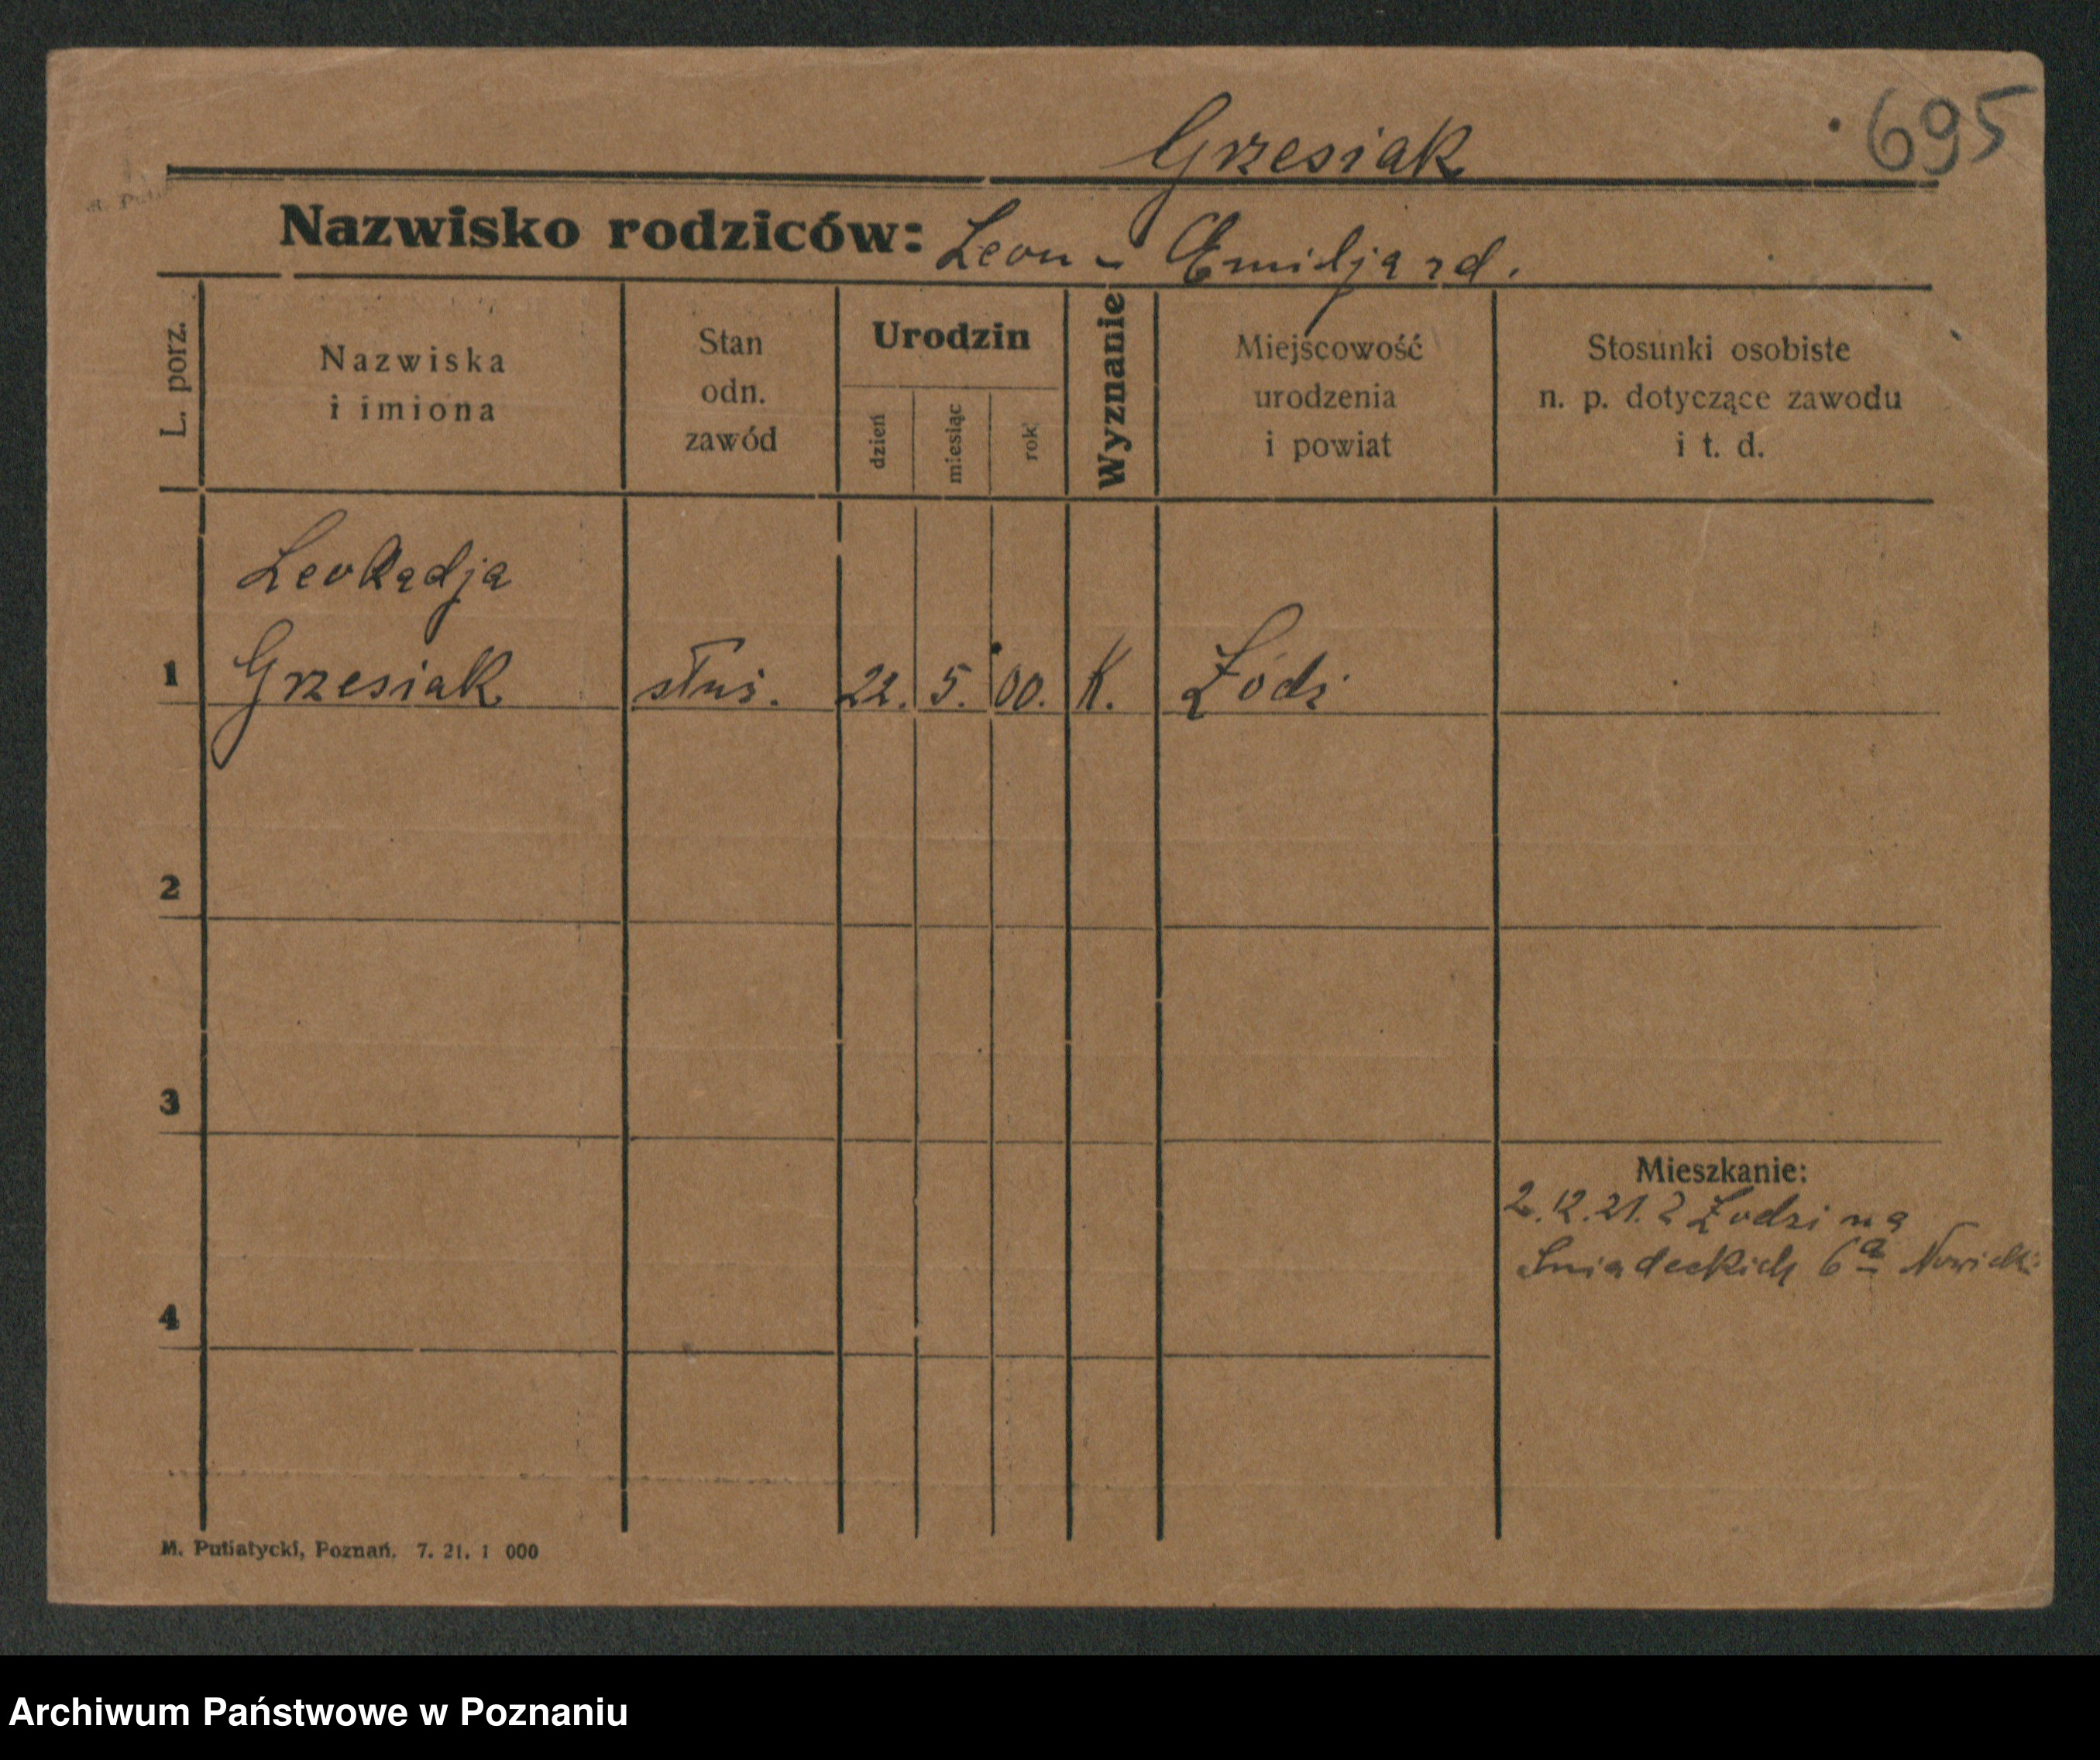 Grzesiak
695
Nazwisko rodziców: Leon - Emilja zd.
L. porz.
Nazwiska
i imiona
Stan
odn.
zawód
Urodzin
dzień
miesiąc
rok
Wyznanie
Miejscowość
urodzenia
i powiat
Stosunki osobiste
n. p. dotyczące zawodu
i t. d.
Leokadja
1 Grzesiak służ. 22. 5. 00. K. Łódź
2
3
Mieszkanie:
2.12.21. z Łodzi na
Śniadeckich 6a
4
M. Putiatycki, Poznań. 7. 21. 1 000
Archiwum Państwowe w Poznaniu